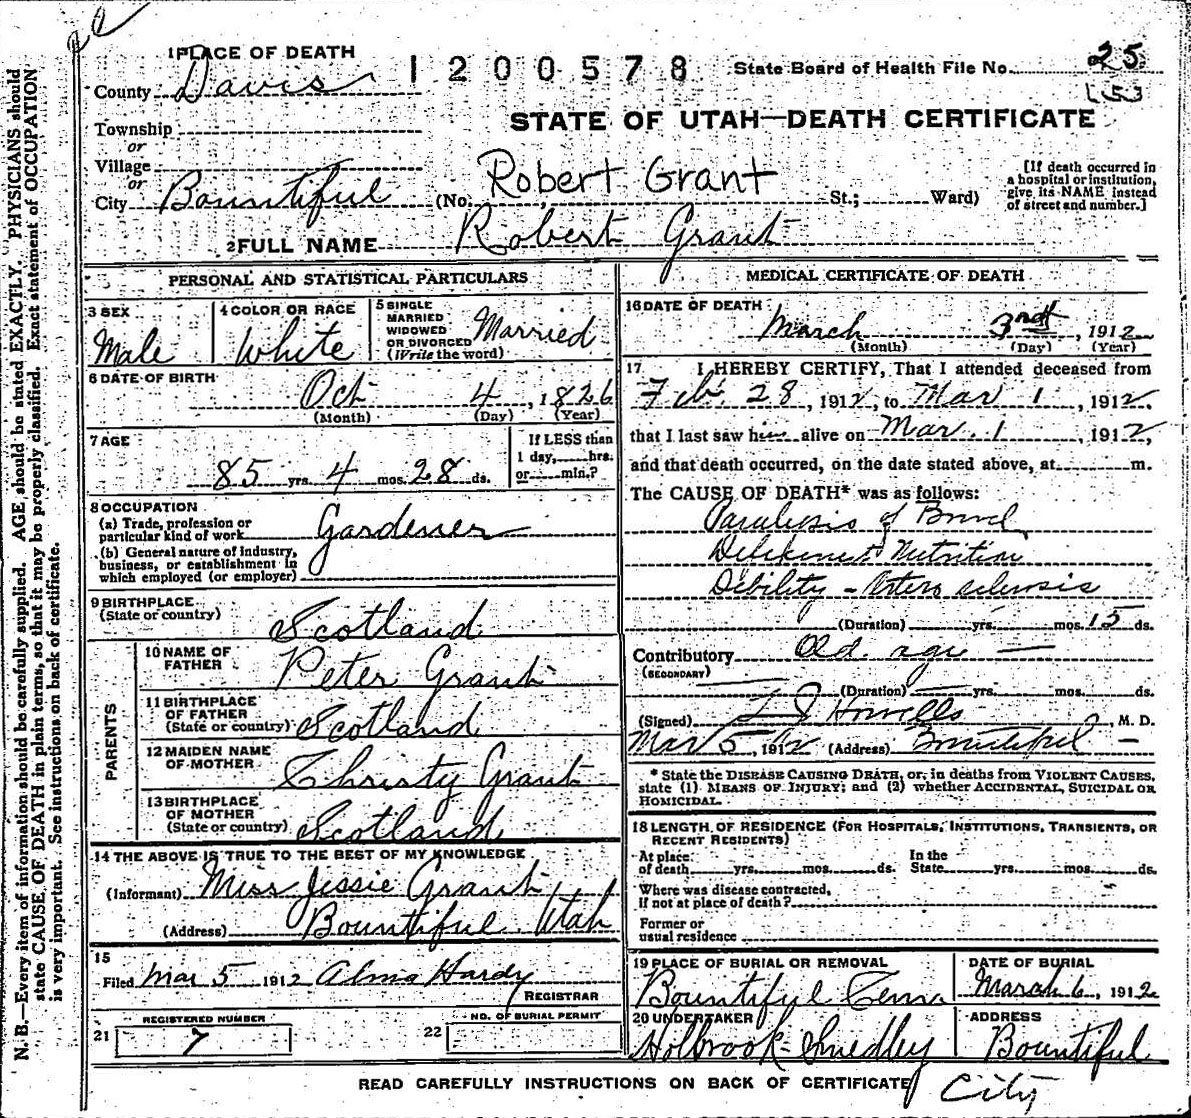 1 PLACE OF DEATH
1200578
State Board of Health File No. 25
153
County Davis
STATE OF UTAH—DEATH CERTIFICATE
Township
or
Village
or
City Bountiful (No. Robert Grant St.; Ward)
[If death occurred in
a hospital or institution,
give its NAME instead
of street and number.]
2 FULL NAME Robert Grant
PERSONAL AND STATISTICAL PARTICULARS
3 SEX
Male
4 COLOR OR RACE
White
5 SINGLE
MARRIED
WIDOWED
OR DIVORCED
(Write the word)
Married
6 DATE OF BIRTH
Oct 4, 1826
(Month) (Day) (Year)
7 AGE
85 yrs. 4 mos. 28 ds.
If LESS than
1 day, hrs.
or min.?
8 OCCUPATION
(a) Trade, profession or
particular kind of work Gardener
(b) General nature of industry,
business, or establishment in
which employed (or employer)
9 BIRTHPLACE
(State or country)
Scotland
PARENTS
10 NAME OF
FATHER Peter Grant
11 BIRTHPLACE
OF FATHER
(State or country) Scotland
12 MAIDEN NAME
OF MOTHER Christy Grant
13 BIRTHPLACE
OF MOTHER
(State or country) Scotland
14 THE ABOVE IS TRUE TO THE BEST OF MY KNOWLEDGE
(Informant) Miss Jessie Grant
(Address) Bountiful Utah
15
Filed Mar 5 1912 Alma Hardy
REGISTRAR
21 REGISTERED NUMBER
7
22 NO. OF BURIAL PERMIT
MEDICAL CERTIFICATE OF DEATH
16 DATE OF DEATH
March 3, 1912
(Month) (Day) (Year)
17 I HEREBY CERTIFY, That I attended deceased from
Feb. 28, 1912, to Mar 1, 1912,
that I last saw him alive on Mar. 1, 1912,
and that death occurred, on the date stated above, at m.
The CAUSE OF DEATH* was as follows:
Paralysis of Bowel
Nutrition
Debility - Artero sclerosis
(Duration) yrs. mos. 15 ds.
Contributory Old age —
(SECONDARY)
(Duration) yrs. mos. ds.
(Signed) Howells, M. D.
Mar 5, 1912 (Address) Bountiful —
* State the DISEASE CAUSING DEATH, or, in deaths from VIOLENT CAUSES,
state (1) MEANS OF INJURY; and (2) whether ACCIDENTAL, SUICIDAL OR
HOMICIDAL.
18 LENGTH OF RESIDENCE (FOR HOSPITALS, INSTITUTIONS, TRANSIENTS, OR
RECENT RESIDENTS)
At place
of death yrs. mos. ds.
In the
State yrs. mos. ds.
Where was disease contracted,
if not at place of death?
Former or
usual residence
19 PLACE OF BURIAL OR REMOVAL
Bountiful
DATE OF BURIAL
March 6, 1912
20 UNDERTAKER
Holbrook-Smedley
ADDRESS
Bountiful
City
READ CAREFULLY INSTRUCTIONS ON BACK OF CERTIFICATE
N. B.—Every item of information should be carefully supplied. AGE should be stated EXACTLY. PHYSICIANS should
state CAUSE OF DEATH in plain terms, so that it may be properly classified. Exact statement of OCCUPATION
is very important. See instructions on back of certificate.